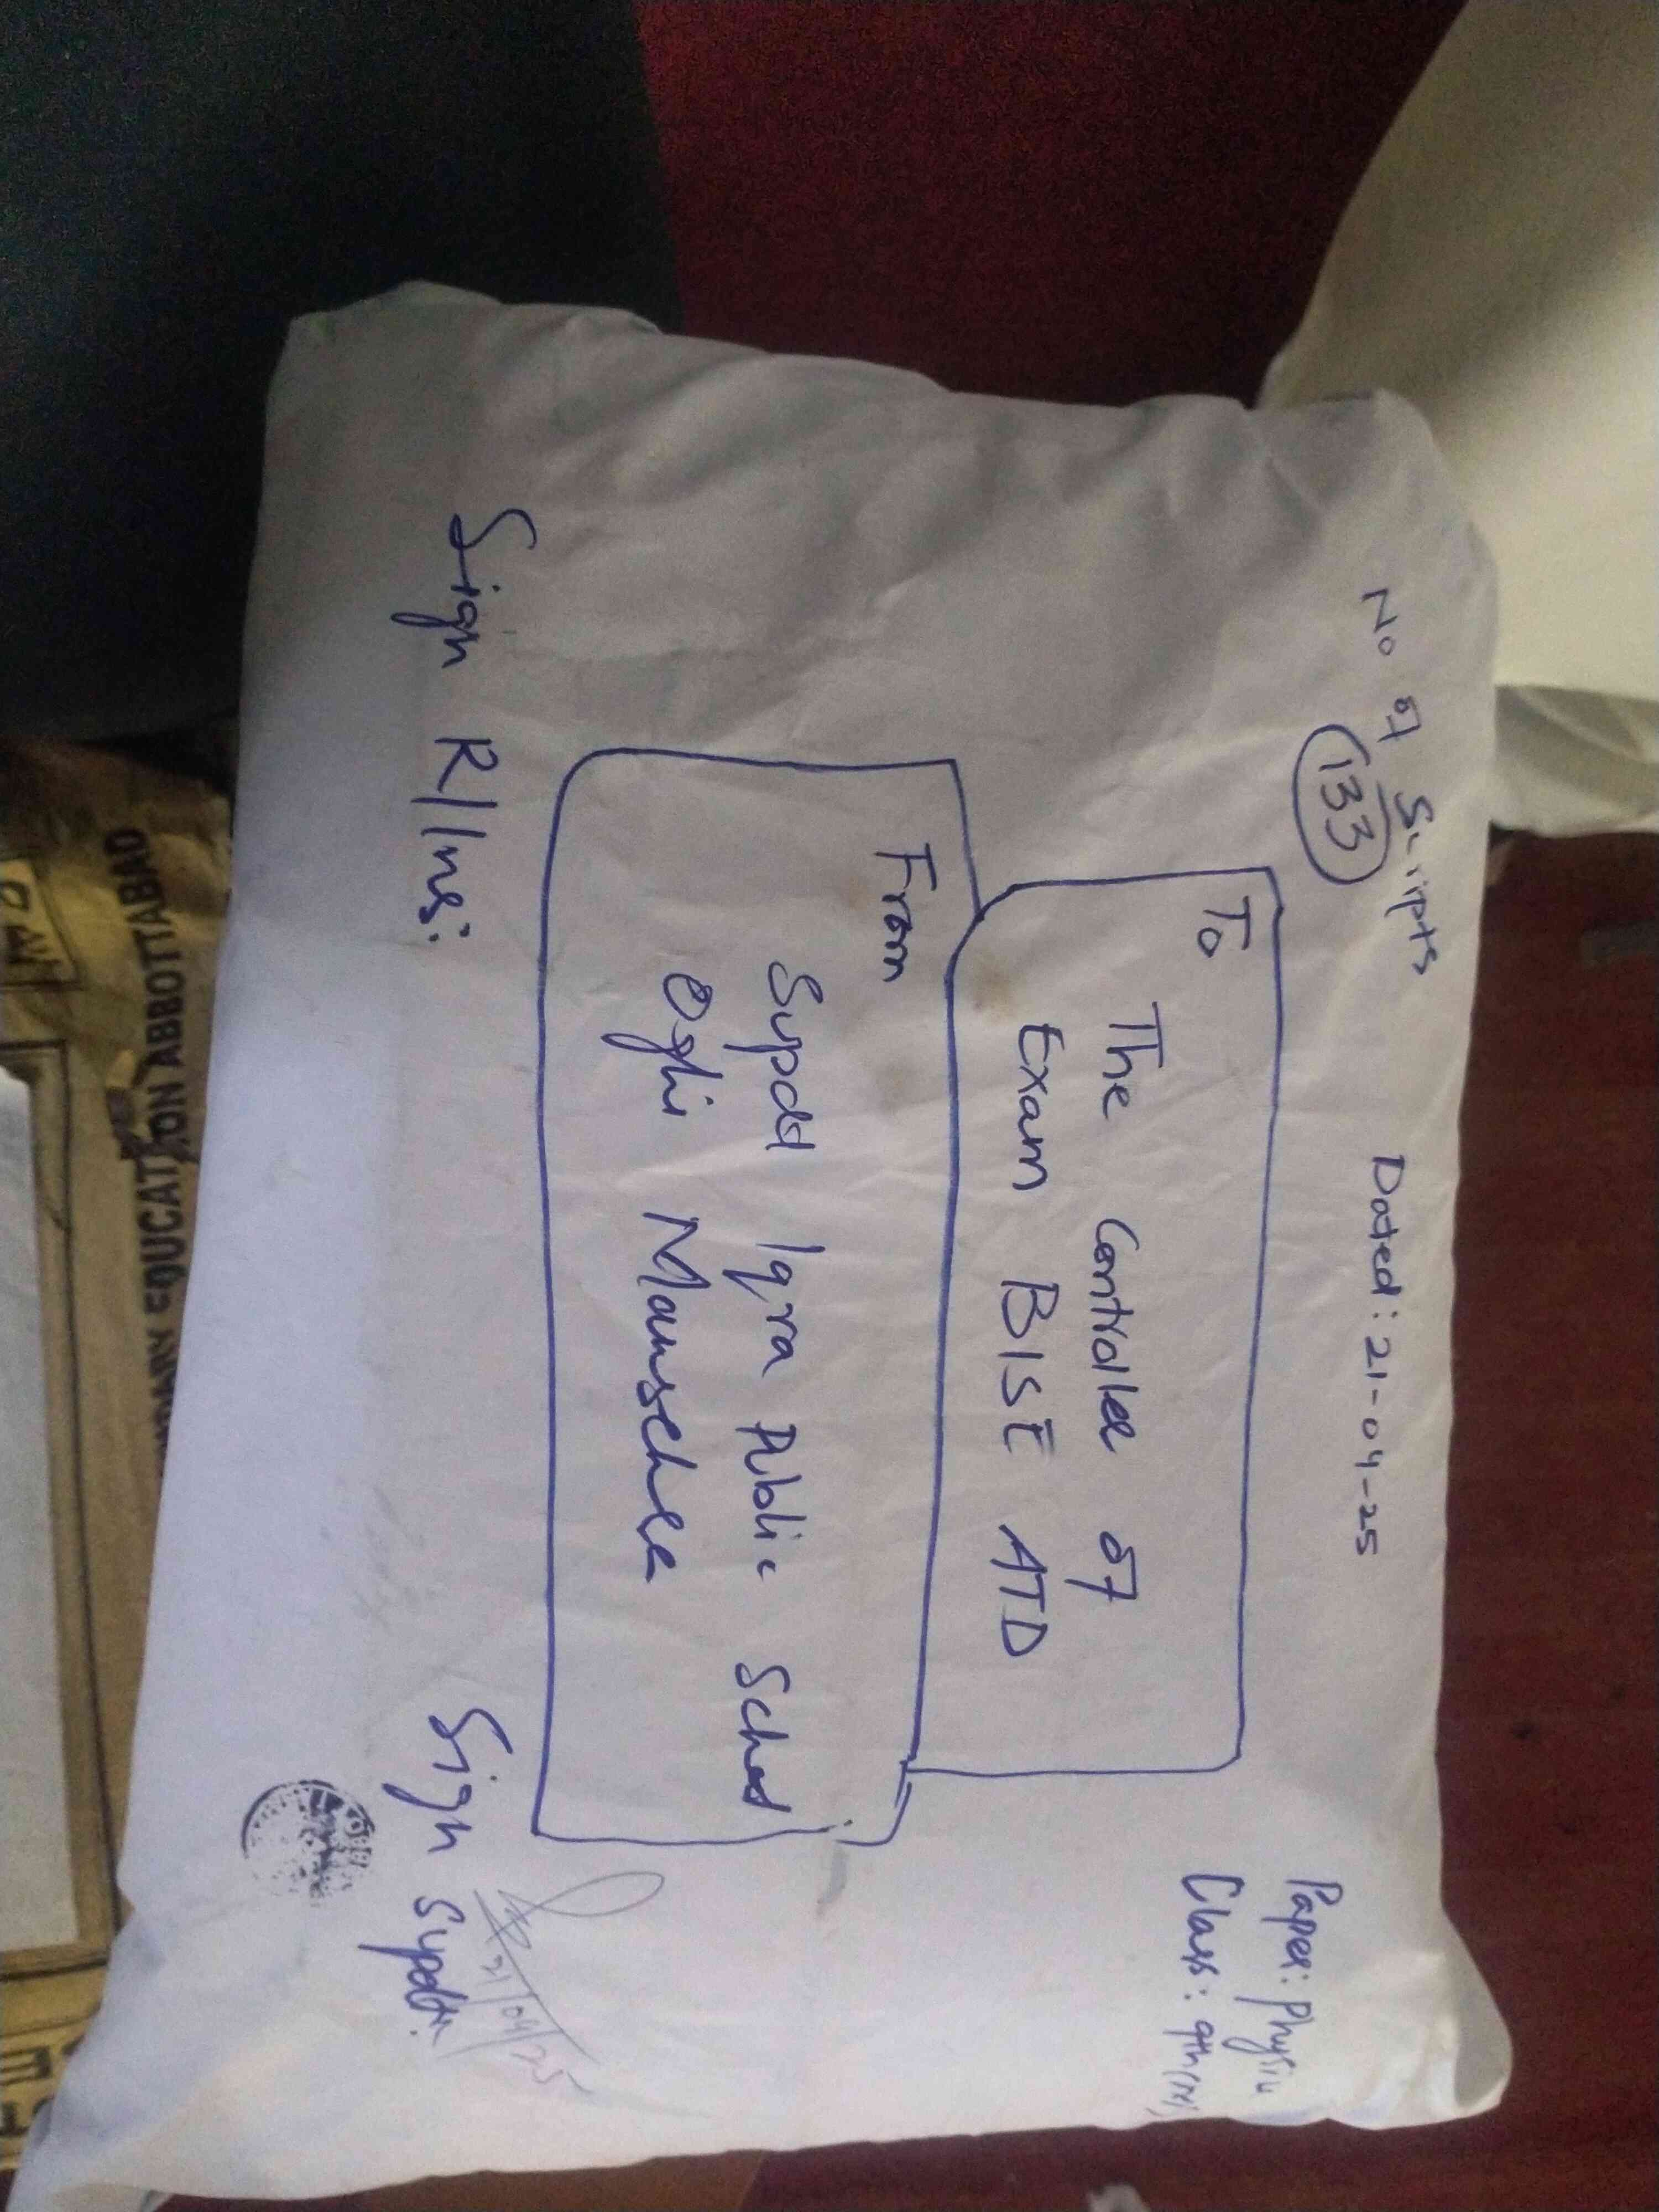 No of Scripts
133
Dated: 21-04-25
Paper: Physics
Class: 9th (N)
To
The Controller of
Exam BISE ATD
From
Supdt Iqra Public School
Oghi Mansehra
Sign R/Ins:
Sign Supdtn:
21/04/25
EDUCATION ABBOTTABAD